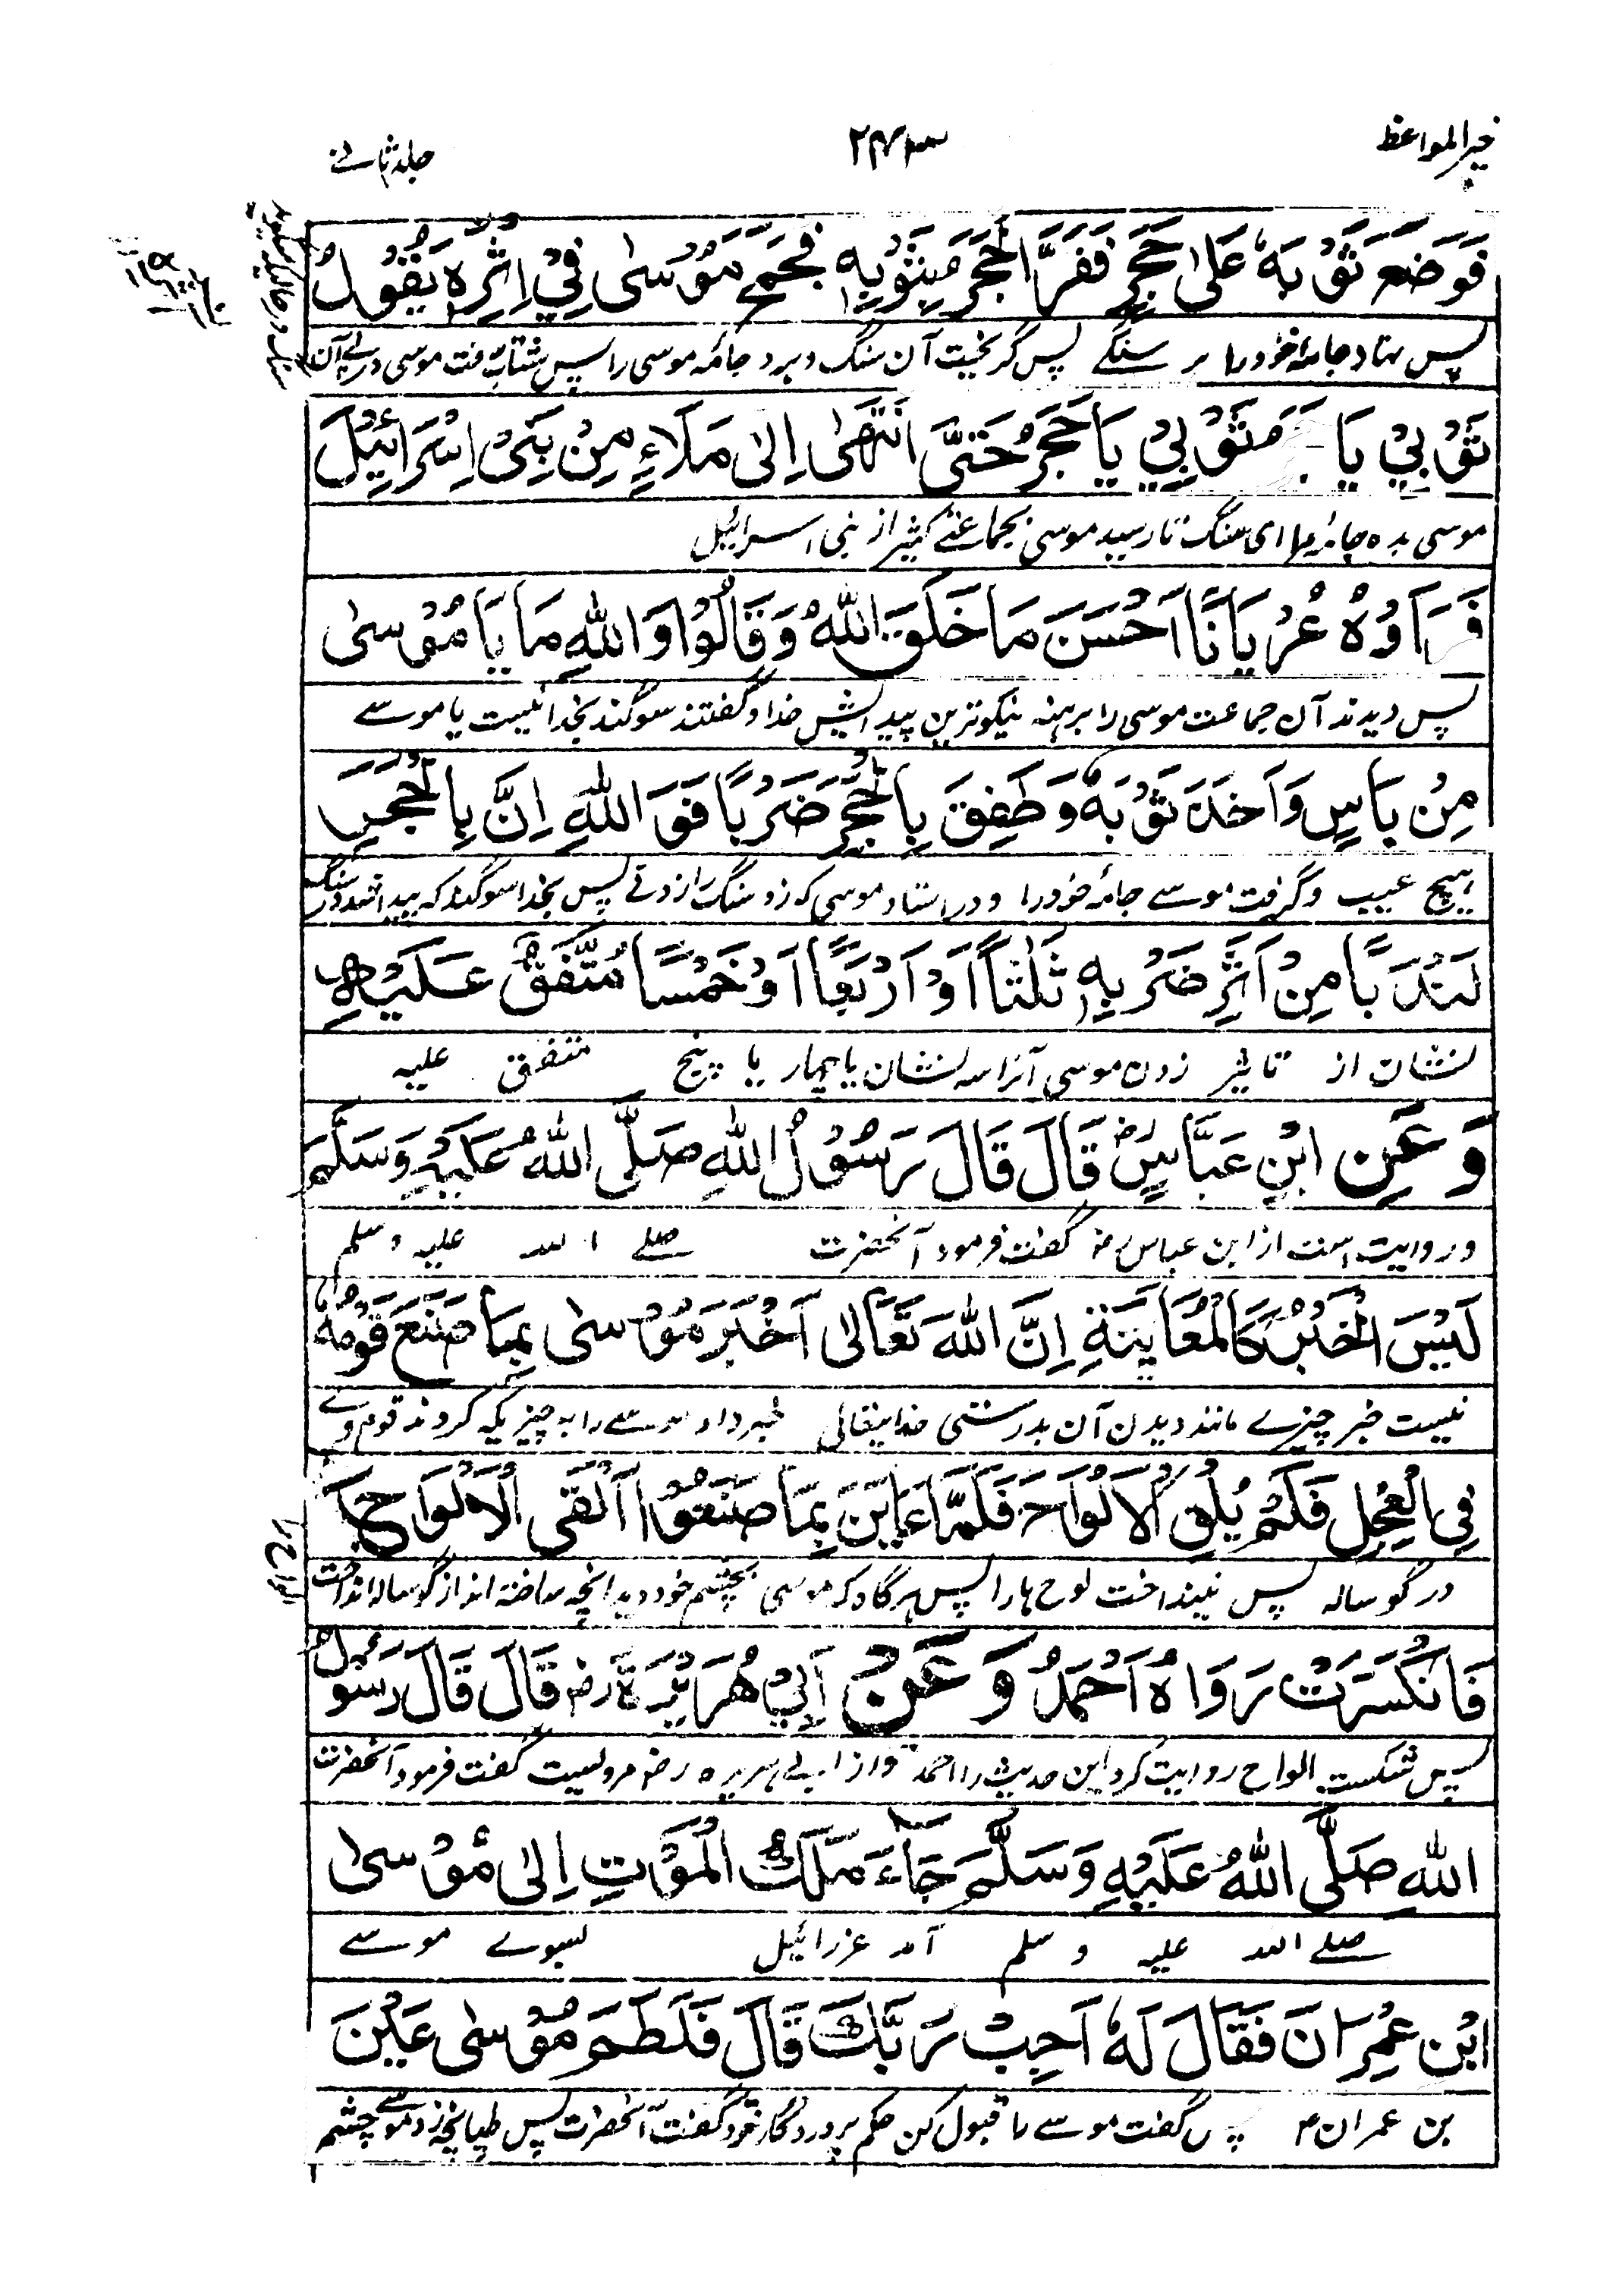 خیر المواعظ
۲۴۳
جلد ثانے
فَوَضَعَ ثَوْبَهٗ عَلٰی حَجَرٍ فَفَرَّ الْحَجَرُ بِثَوْبِهٖ فَجَمَحَ مُوْسٰی فِيْ اِثْرِهٖ يَقُوْلُ
پس نهاد جامهٔ خود را بر سنگے پس گریخت آن سنگ و برد جامهٔ موسی را پس بشتاب رفت موسی در پے آن
ثَوْبِيْ يَا ثَوْبِيْ يَا حَجَرُ حَتّٰی انْتَهٰی اِلٰی مَلَاءٍ مِنْ بَنِیْ اِسْرَائِيْلَ
موسی بده جامهٔ ما ای سنگ تا رسید موسی بجماعتے کثیر از بنی اسرائیل
فَرَاَوْهُ عُرْيَانًا اَحْسَنَ مَا خَلَقَ اللّٰهُ وَقَالُوْا وَاللّٰهِ مَا يَا مُوْسٰی
پس دیدند آن جماعت موسی را برهنه نیکوترین پیدائش خدا و گفتند سوگند بخدا نیست یا موسے
مِنْ بَاسٍ وَاَخَذَ ثَوْبَهٗ وَطَفِقَ بِالْحَجَرِ ضَرْبًا فَوَ اللّٰهِ اِنَّ بِالْحَجَرِ
هیچ عیب و گرفت موسے جامهٔ خود را و در استاد موسی که زد سنگ را زدنے پس بخدا سوگند که پیدا شد در سنگ
لَنَدَبًا مِنْ اَثَرِ ضَرْبِهٖ ثَلٰثًا اَوْ اَرْبَعًا اَوْ خَمْسًا مُتَّفَقٌ عَلَيْهِ
نشان از تاثیر زدن موسی آنرا سه نشان یا چهار یا پنج متفق علیه
وَعَنِ ابْنِ عَبَّاسٍ رض قَالَ قَالَ رَسُوْلُ اللّٰهِ صَلَّی اللّٰهُ عَلَيْهِ وَسَلَّمَ
و روایت است از ابن عباس رض گفت فرمود آنحضرت صلے الله علیه و سلم
لَيْسَ الْخَبَرُ كَالْمُعَايَنَةِ اِنَّ اللّٰهَ تَعَالٰی اَخْبَرَ مُوْسٰی بِمَا صَنَعَ قَوْمُهٗ
نیست خبر چیزے مانند دیدن آن بدرستی خدایتعالی خبر داد موسے را به چیزیکه کردند قوم وے
فِی الْعِجْلِ فَلَمْ يُلْقِ الْاَلْوَاحَ فَلَمَّا عَايَنَ بِمَا صَنَعُوْا اَلْقَی الْاَلْوَاحَ
در گوساله پس نینداخت لوح ها را پس هرگاه که موسی بچشم خود دید انچه ساخته اند از گوساله انداخت
الواح را
فَانْكَسَرَتْ رَوَاهُ اَحْمَدُ وَعَنْ اَبِيْ هُرَيْرَةَ رض قَالَ قَالَ رَسُوْلُ
پس شکست الواح روایت کرد این حدیث را احمد و از ابی هریره رض مرویست گفت فرمود آنحضرت
اللّٰهِ صَلَّی اللّٰهُ عَلَيْهِ وَسَلَّمَ جَاءَ مَلَكُ الْمَوْتِ اِلٰی مُوْسٰی
صلے الله علیه و سلم آمد عزرائیل بسوے موسے
ابْنِ عِمْرَانَ فَقَالَ لَهٗ اَجِبْ رَبَّكَ قَالَ فَلَطَمَ مُوْسٰی عَيْنَ
بن عمران گفت موسے را قبول کن حکم پروردگار خود گفت آنحضرت پس طپانچه زد موسے چشم